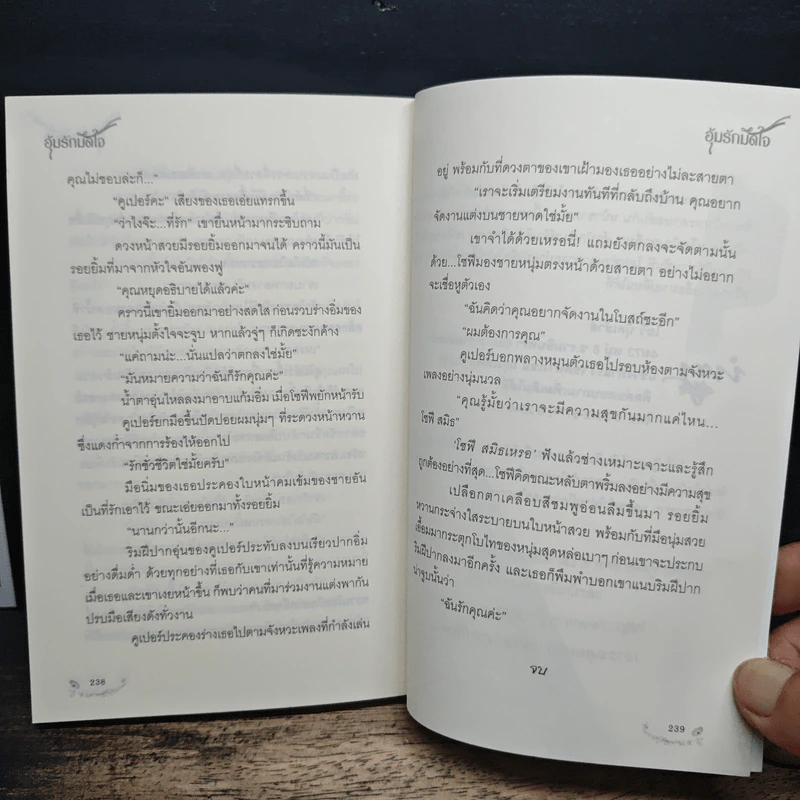 อุ้มรักมัดใจ
คุณไม่ชอบล่ะก็..."
"คูเปอร์คะ" เสียงของเธอเอ่ยแทรกขึ้น
"ว่าไงจ๊ะ...ที่รัก" เขายื่นหน้ามากระซิบถาม
ดวงหน้าสวยมีรอยยิ้มออกมาจนได้ คราวนี้มันเป็น
รอยยิ้มที่มาจากหัวใจอันพองฟู
"คุณหยุดอธิบายได้แล้วค่ะ"
คราวนี้เขายิ้มออกมาอย่างสดใส ก่อนรวบร่างอิ่มของ
เธอไว้ ชายหนุ่มตั้งใจจะจูบ หากแล้วจู่ๆ ก็เกิดชะงักค้าง
"แค่ถามน่ะ...นั่นแปลว่าตกลงใช่มั้ย"
"มันหมายความว่าฉันก็รักคุณค่ะ"
น้ำตาอุ่นไหลลงมาอาบแก้มอิ่ม เมื่อโซฟีพยักหน้ารับ
คูเปอร์ยกมือขึ้นปัดปอยผมนุ่มๆ ที่ระดวงหน้าหวาน
ซึ่งแดงก่ำจากการร้องไห้ออกไป
"รักชั่วชีวิตใช่มั้ยครับ"
มือนิ่มของเธอประคองใบหน้าคมเข้มของชายอัน
เป็นที่รักเอาไว้ ขณะเอ่ยออกมาทั้งรอยยิ้ม
"นานกว่านั้นอีกนะ..."
ริมฝีปากอุ่นของคูเปอร์ประทับลงบนเรียวปากอิ่ม
อย่างดื่มด่ำ ด้วยทุกอย่างที่เธอกับเขาเท่านั้นที่รู้ความหมาย
เมื่อเธอและเขาเงยหน้าขึ้น ก็พบว่าคนที่มาร่วมงานแต่งพากัน
ปรบมือเสียงดังทั่วงาน
คูเปอร์ประคองร่างเธอไปตามจังหวะเพลงที่กำลังเล่น
238
อุ้มรักมัดใจ
อยู่ พร้อมกับที่ดวงตาของเขาเฝ้ามองเธออย่างไม่ละสายตา
"เราจะเริ่มเตรียมงานทันทีที่กลับถึงบ้าน คุณอยาก
จัดงานแต่งบนชายหาดใช่มั้ย"
เขาจำได้ด้วยเหรอนี่! แถมยังตกลงจะจัดตามนั้น
ด้วย...โซฟีมองชายหนุ่มตรงหน้าด้วยสายตา อย่างไม่อยาก
จะเชื่อหูตัวเอง
"ฉันคิดว่าคุณอยากจัดงานในโบสถ์ซะอีก"
"ผมต้องการคุณ"
คูเปอร์บอกพลางหมุนตัวเธอไปรอบห้องตามจังหวะ
เพลงอย่างนุ่มนวล
"คุณรู้มั้ยว่าเราจะมีความสุขกันมากแค่ไหน...
โซฟี สมิธ"
'โซฟี สมิธเหรอ' ฟังแล้วช่างเหมาะเจาะและรู้สึก
ถูกต้องอย่างที่สุด...โซฟีคิดขณะหลับตาพริ้มลงอย่างมีความสุข
เปลือกตาเคลือบสีชมพูอ่อนลืมขึ้นมา รอยยิ้ม
หวานกระจ่างใสระบายบนใบหน้าสวย พร้อมกับที่มือนุ่มสวย
เอื้อมมากระตุกโบไทของหนุ่มสุดหล่อเบาๆ ก่อนเขาจะประกบ
ริมฝีปากลงมาอีกครั้ง และเธอก็พึมพำบอกเขาแนบริมฝีปาก
น่าจูบนั้นว่า
"ฉันรักคุณค่ะ"
จบ
239